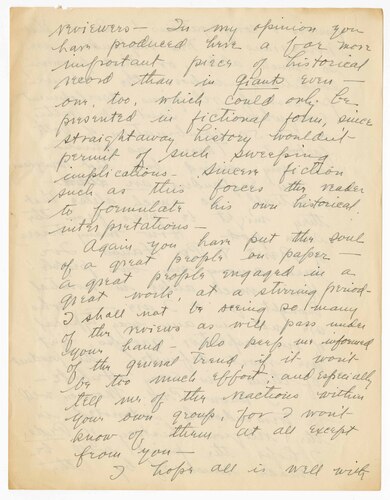 reviewers - In my opinion you
have produced here a far more
important piece of historical
record than in Giants even -
one, too, which could only be
presented in fictional form, since
straightaway history wouldn't
permit of such sweeping
implications - Sincere fiction
such as this forces the reader
to formulate his own historical
interpretations -
Again you have put the soul
of a great people on paper -
a great people engaged in a
great work at a stirring period -
I shall not be seeing so many
of the reviews as will pass under
your hand - Do keep me informed
of the general trend, if it won't
be too much effort - and especially
tell me of the reactions within
your own group, for I won't
know of them at all except
from you -
I hope all is well with